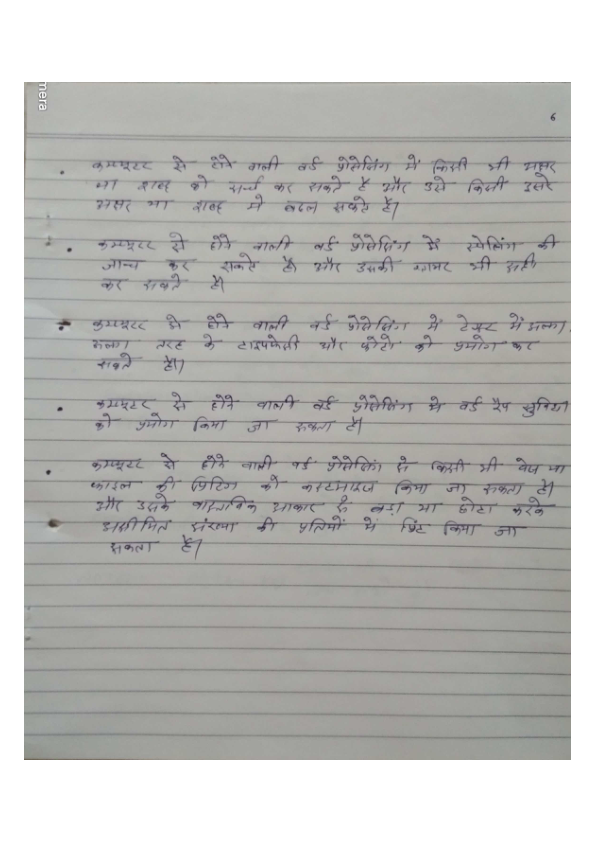 mera
6
• कम्प्यूटर से होने वाली वर्ड प्रोसेसिंग में किसी भी अक्षर
या शब्द को सर्च कर सकते है और उसे किसी दूसरे
अक्षर या शब्द में बदल सकते है।
• कम्प्यूटर से होने वाली वर्ड प्रोसेसिंग में स्पेलिंग की
जान्च कर सकते है। और उसकी ग्रामर भी सही
कर सकते है।
• कम्प्यूटर से होने वाली वर्ड प्रोसेसिंग में टेक्स्ट में अलग,
अलग तरह के टाइपफेसों और फोंटो को प्रयोग कर
सकते है।
• कम्प्यूटर से होने वाली वर्ड प्रोसेसिंग में वर्ड रैप सुविधा
को प्रयोग किया जा सकता है।
• कम्प्यूटर से होने वाली वर्ड प्रोसेसिंग से किसी भी पेज या
फाइल की प्रिटिंग को कस्टमाइज किया जा सकता है।
और उसके वास्तविक आकार से बड़ा या छोटा करके
असीमित संख्या की प्रतियों में प्रिंट किया जा
सकता है।